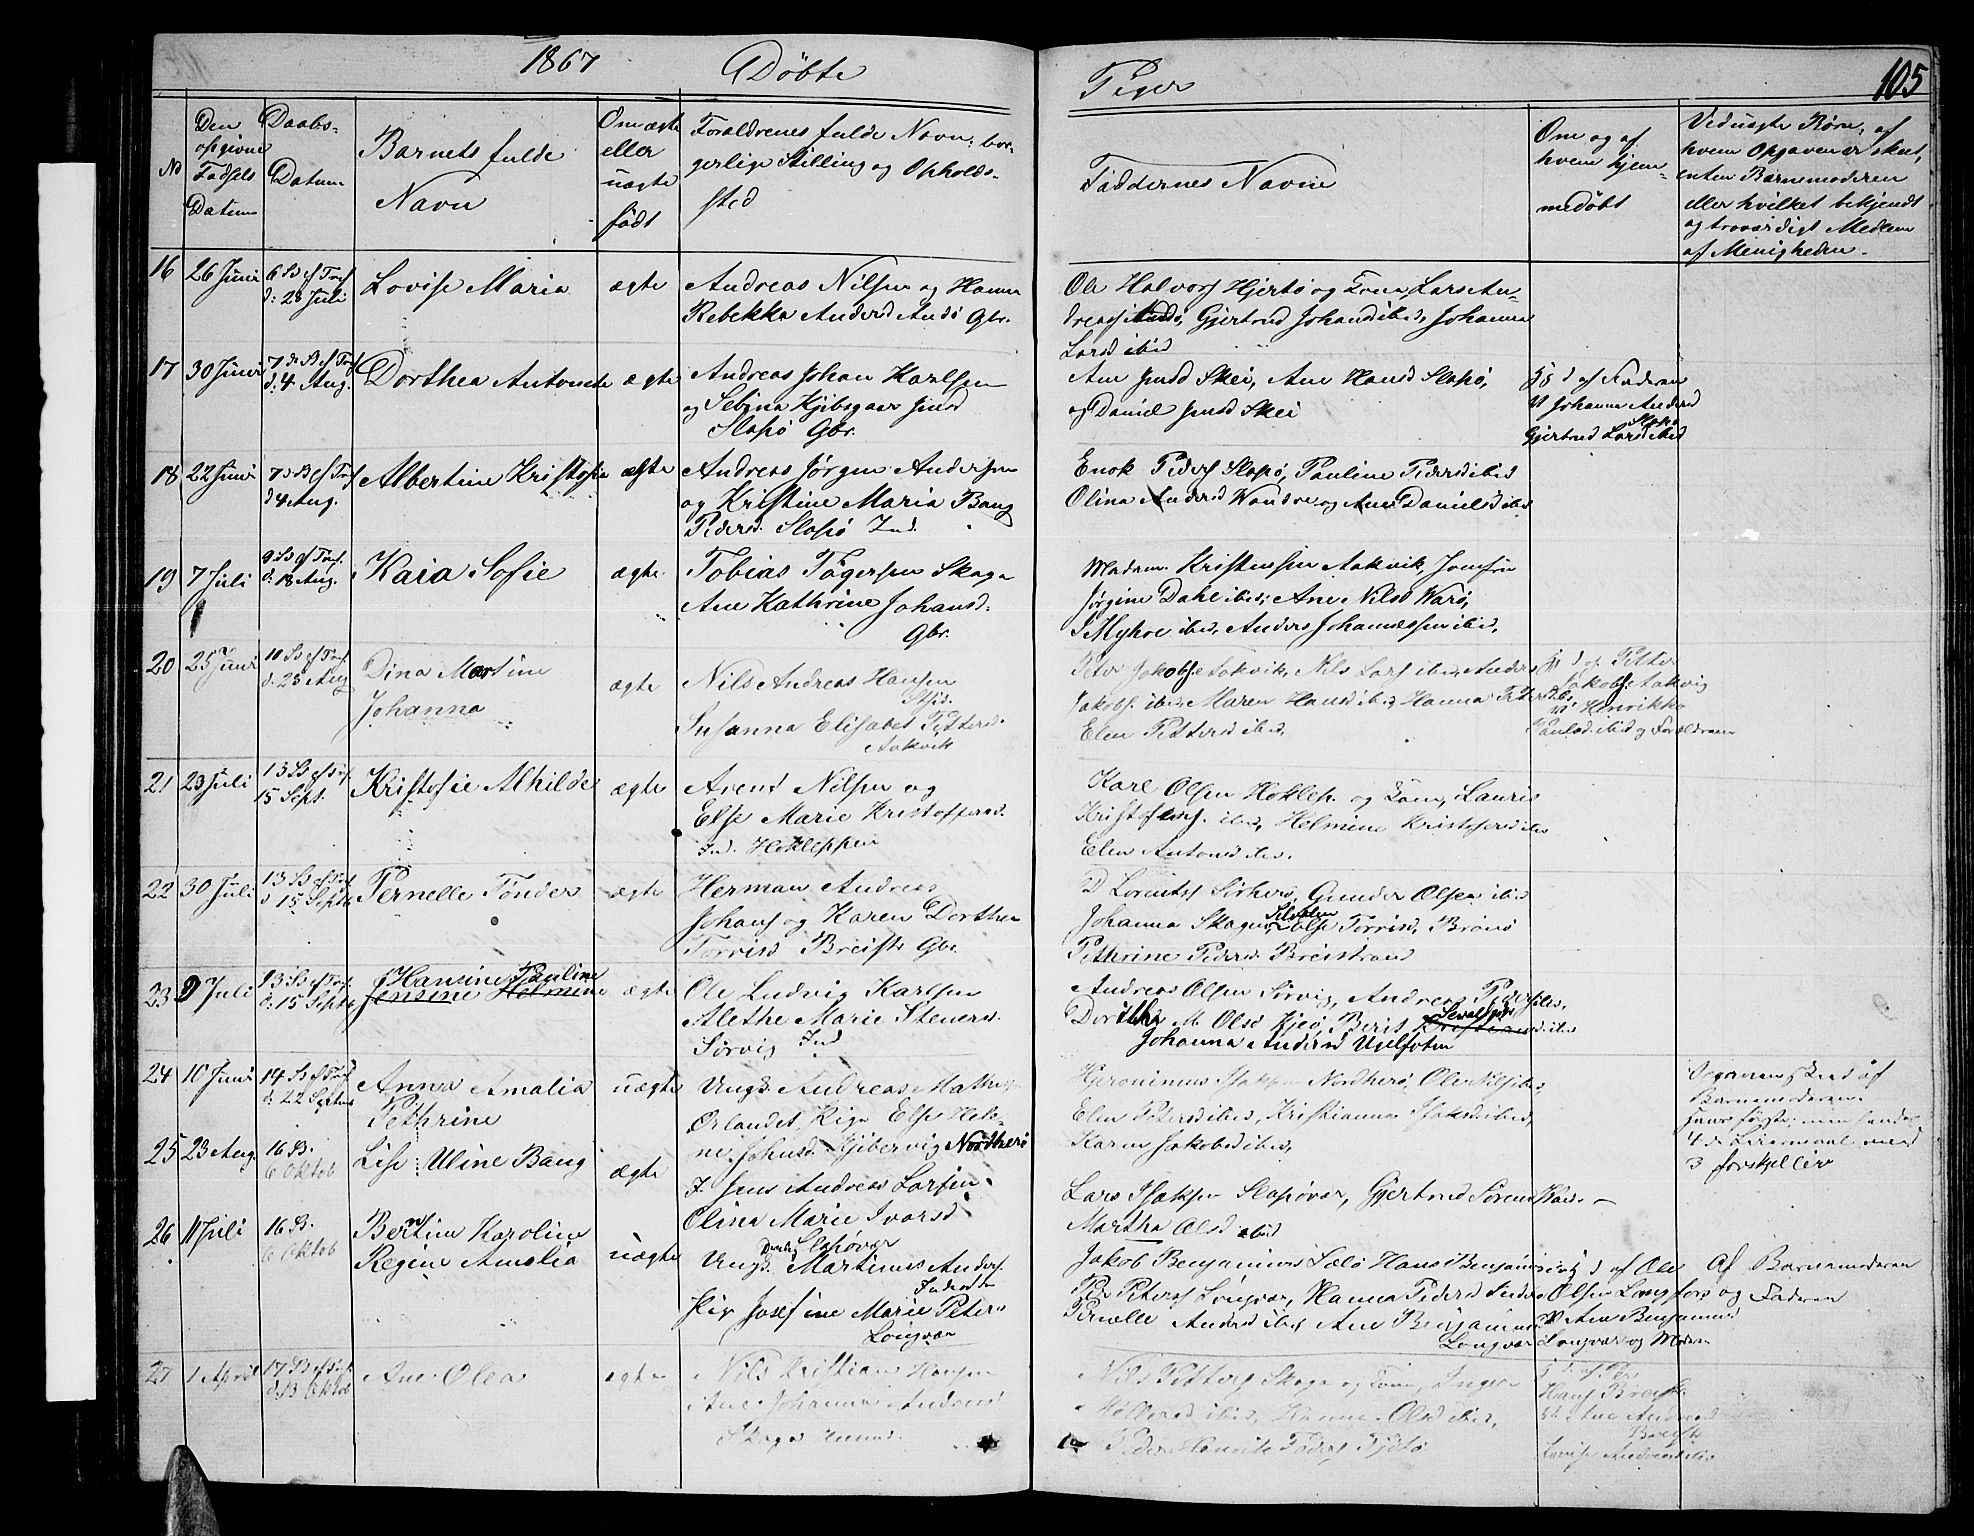 1867 Døbte Piger 105
No
Den opgivne Fødsels Datum
Daabs-Datum
Barnets fulde Navn
Om ægte eller uægte født
Forældrenes fulde Navn, bor-
gerlige Stilling og Opholds-
sted
Faddernes Navne
Om og af hvem hjem-
medøbt
Ved uægte Børn, af
hvem Opgaven er skeet,
enten Barnemoderen
eller hvilket bekjendt
og troværdigt Medlem
af Menigheden.
16 26 Juni 6 S ef Tref d. 28 Juli Lovise Maria ægte
Andreas Nilsen og Hanna
Rebekka Andersd Andø Gbr.
Ole Halvors Hjertø og Kone, Lars An-
dreas Andø, Gjertrud Johansd ibid, Johanna
Larsd ibid
17 30 Juni 7de S ef Tref d. 4 Aug. Dorthea Antonete ægte
Andreas Johan Karlsen
og Sebina Kjibsgaar Jensd
Slapø Gbr.
Ane Jensd Skei, Ane Hansd Slapø,
og Daniel Jensd Skei
Hj d af Faderen
V Johanna Andersd
Slapø
Gjertrud Larsd ibid
18 22 Juni 7 S ef Tref d 4 Aug. Albertine Kristofa ægte
Andreas Jørgen Andersen
og Kristine Maria Bang
Pedersd. Slapø Ind.
Enok Peders Slapø, Pauline Pedersd ibid
Olina Andersd Wandve og Ane Danielsd ibid
19 7 Juli 9 S ef Tref. d. 18 Aug. Kaia Sofie ægte
Tobias Tøgersen Skaga
Ane Kathrine Johansd.
Gbr.
Madam Kristensen Aakvik, Jomfru
Jørgine Dahl ibid, Ane Nilsd Warø,
J Myhre ibid, Anders Johannessen ibid,
20 25 Juni 10 S ef Tref. d. 25 Aug Dina Martine
Johanna ægte
Nils Andreas Hansen
Susanna Elisabet Pettersd.
Aakvik
Peter Jakobs Aakvik, Nils Lars ibid, Anders
Jakobs ibid, Maren Hansd ibid, Hanna Petersd ibid,
Elen Pettersd ibid,
Hj d af Petter
Jakobs Aakvig
V Henrikka
Paulsd ibid og Forældrene
21 23 Juli 13 S ef Tref. 15 Sept. Kristofie Alhilde ægte
Arent Nilsen og
Else Marie Kristoffersd.
Ind. Hokleppen
Karl Olsen Hoklep. og Kone, Lauris
Kristofers. ibid, Helmine Kristofersd ibid
Elen Antonsd ibid.
22 30 Juli 13 S ef Tref d 15 Septb Pernelle Tønder ægte
Herman Andreas
Johans og Karen Dorthea
Torrisd Breistr Gbr.
Gunder Olsen ibid
Johanna Skagen, Else Torrisd, Brønø
Pethrine Pedersd Breistrand
23 9 Juli 13 S ef Tref. d. 15 Septb Hansine Pauline
Jensine Helmine ægte
Ole Ludvig Karlsen
Alethe Marie Steners.
Sørvig Ind
Andreas Olsen Sørvig, Andreas Peders ibid,
Dorthea M Olsd Kjeø, Berit
Johanna Andersd
24 10 Juni 14 S ef Tref d. 22 Septb Anna Amalia
Pethrine uægte
Ungk. Andreas Mathis
Ørlandet, Pige Else Hele-
ne Johnsd. Kjibervig Nordherø
Hjeronimus Isaksen Nordherø, Ole Nils ibid,
Elen Petersd ibid, Kristianna Isaksd ibid,
Karen Jakobsd ibid,
Opgaven skeet af
Barnemoderen
4de Leiermaal med
3 forskjellige
25 23 Aug. 16 S. 6 Oktob Lise Uline Bang ægte
J. Jens Andreas Larsen
Olina Marie Ivarsd
Slapøvær
Lars Isaksen Slapøvær, Gjertrud Sørens
Martha Olsd ibid
26 11 Juli 16 S. 6 Oktob Berntine Karoline
Regine Amalia uægte
Ungk. Martinus Anders.
Pige Josefine Marie Peters
Longvær
Jakob Benjamins Sælø Hans Benjamins
Per Peters Longvær, Hanna Pedersd
Pernelle Andersd ibid Ane Benjamins
Longvær
Hj d af Ole
Olsen Longfors og
V Ane Benjamins
Longvær og Moderen
Af Barnemoderen
og Faderen
27 1 April 17 S ef Tref. d. 13 Oktob Ane Olea ægte
Nils Kristian Hansen
Ane Johanna Andreasd
Skaga
Nils Petters Skaga og Kone, Inger
Møllersd ibid, Hanna Olsd ibid,
Peder Henrik Peders
Hj d. af Per
Hans Breistr.
V Ane Andreasd
Breistr
Lovise Andreasd ibid